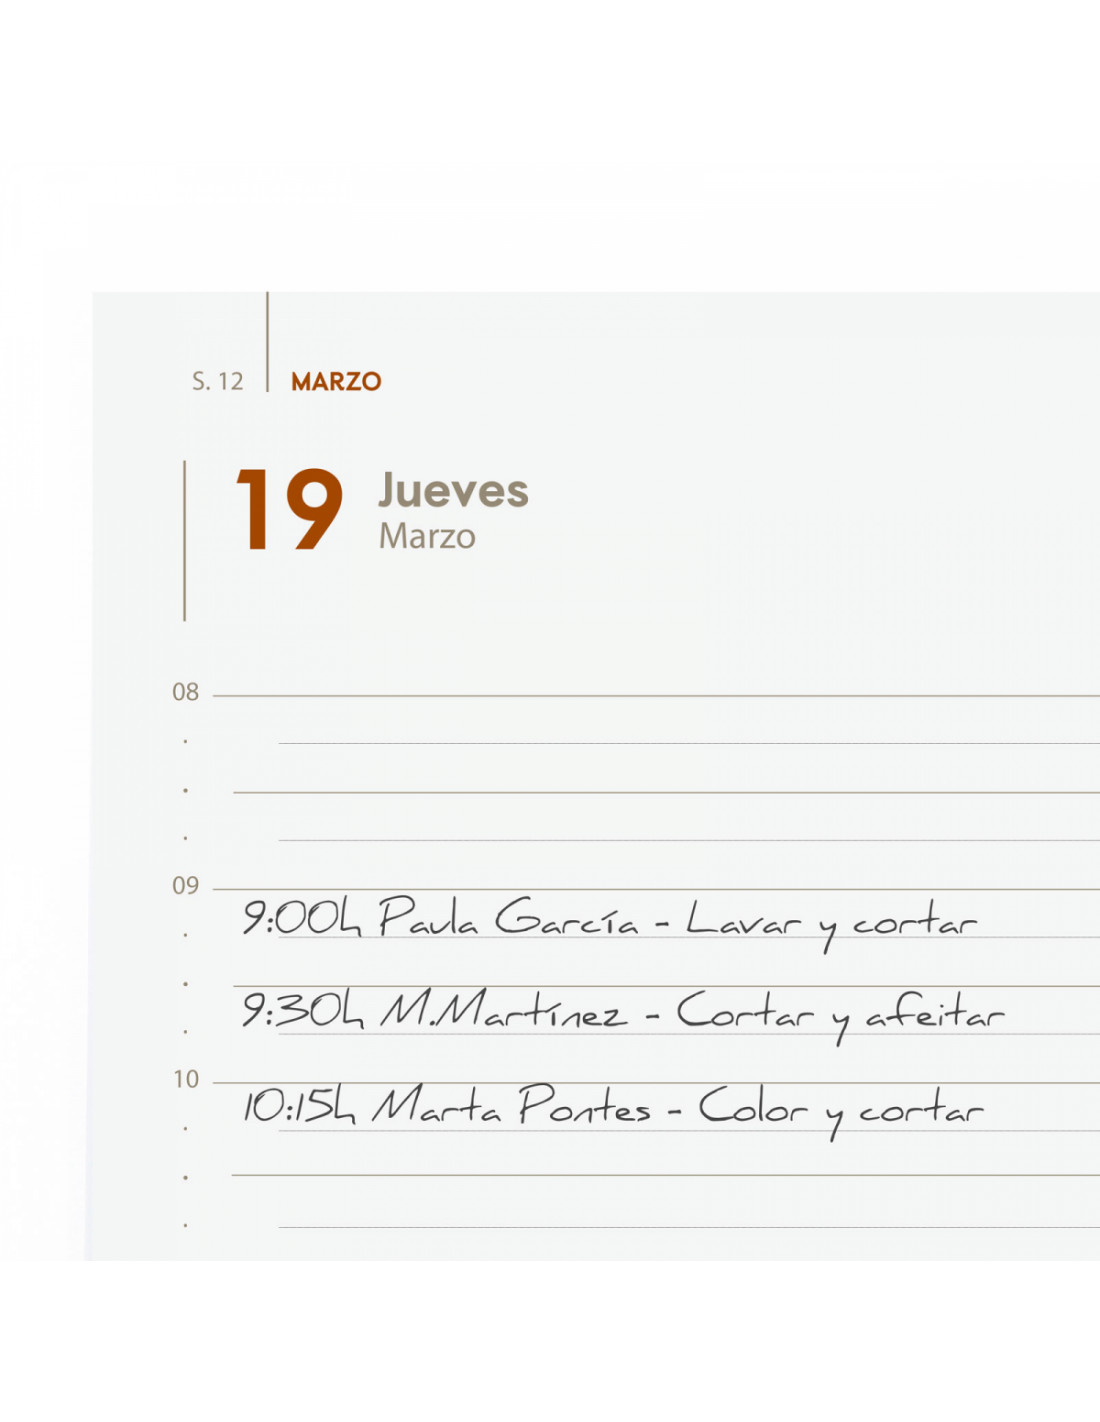 S. 12 MARZO
19 Jueves
Marzo
08
09
9:00h Paula García - Lavar y cortar
9:30h M.Martínez - Cortar y afeitar
10
10:15h Marta Pontes - Color y cortar